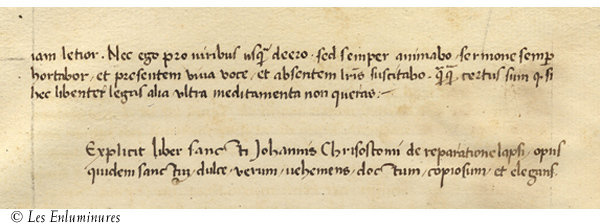 iam letior. Nec ego pro viribus usq̃ deero. sed semper animabo. sermone semp
hortabor. et presentem viva voce, et absentem lr̃is suscitabo. q̃q̃. certus sum q. si
hec libenter legas alia ultra meditamenta non queras:~
Explicit liber sancti Johannis Chrisostomi de reparatione lapsi. opus
quidem sanctũ, dulce. verum. vehemens, doctum, copiosum. et elegans.
© Les Enluminures